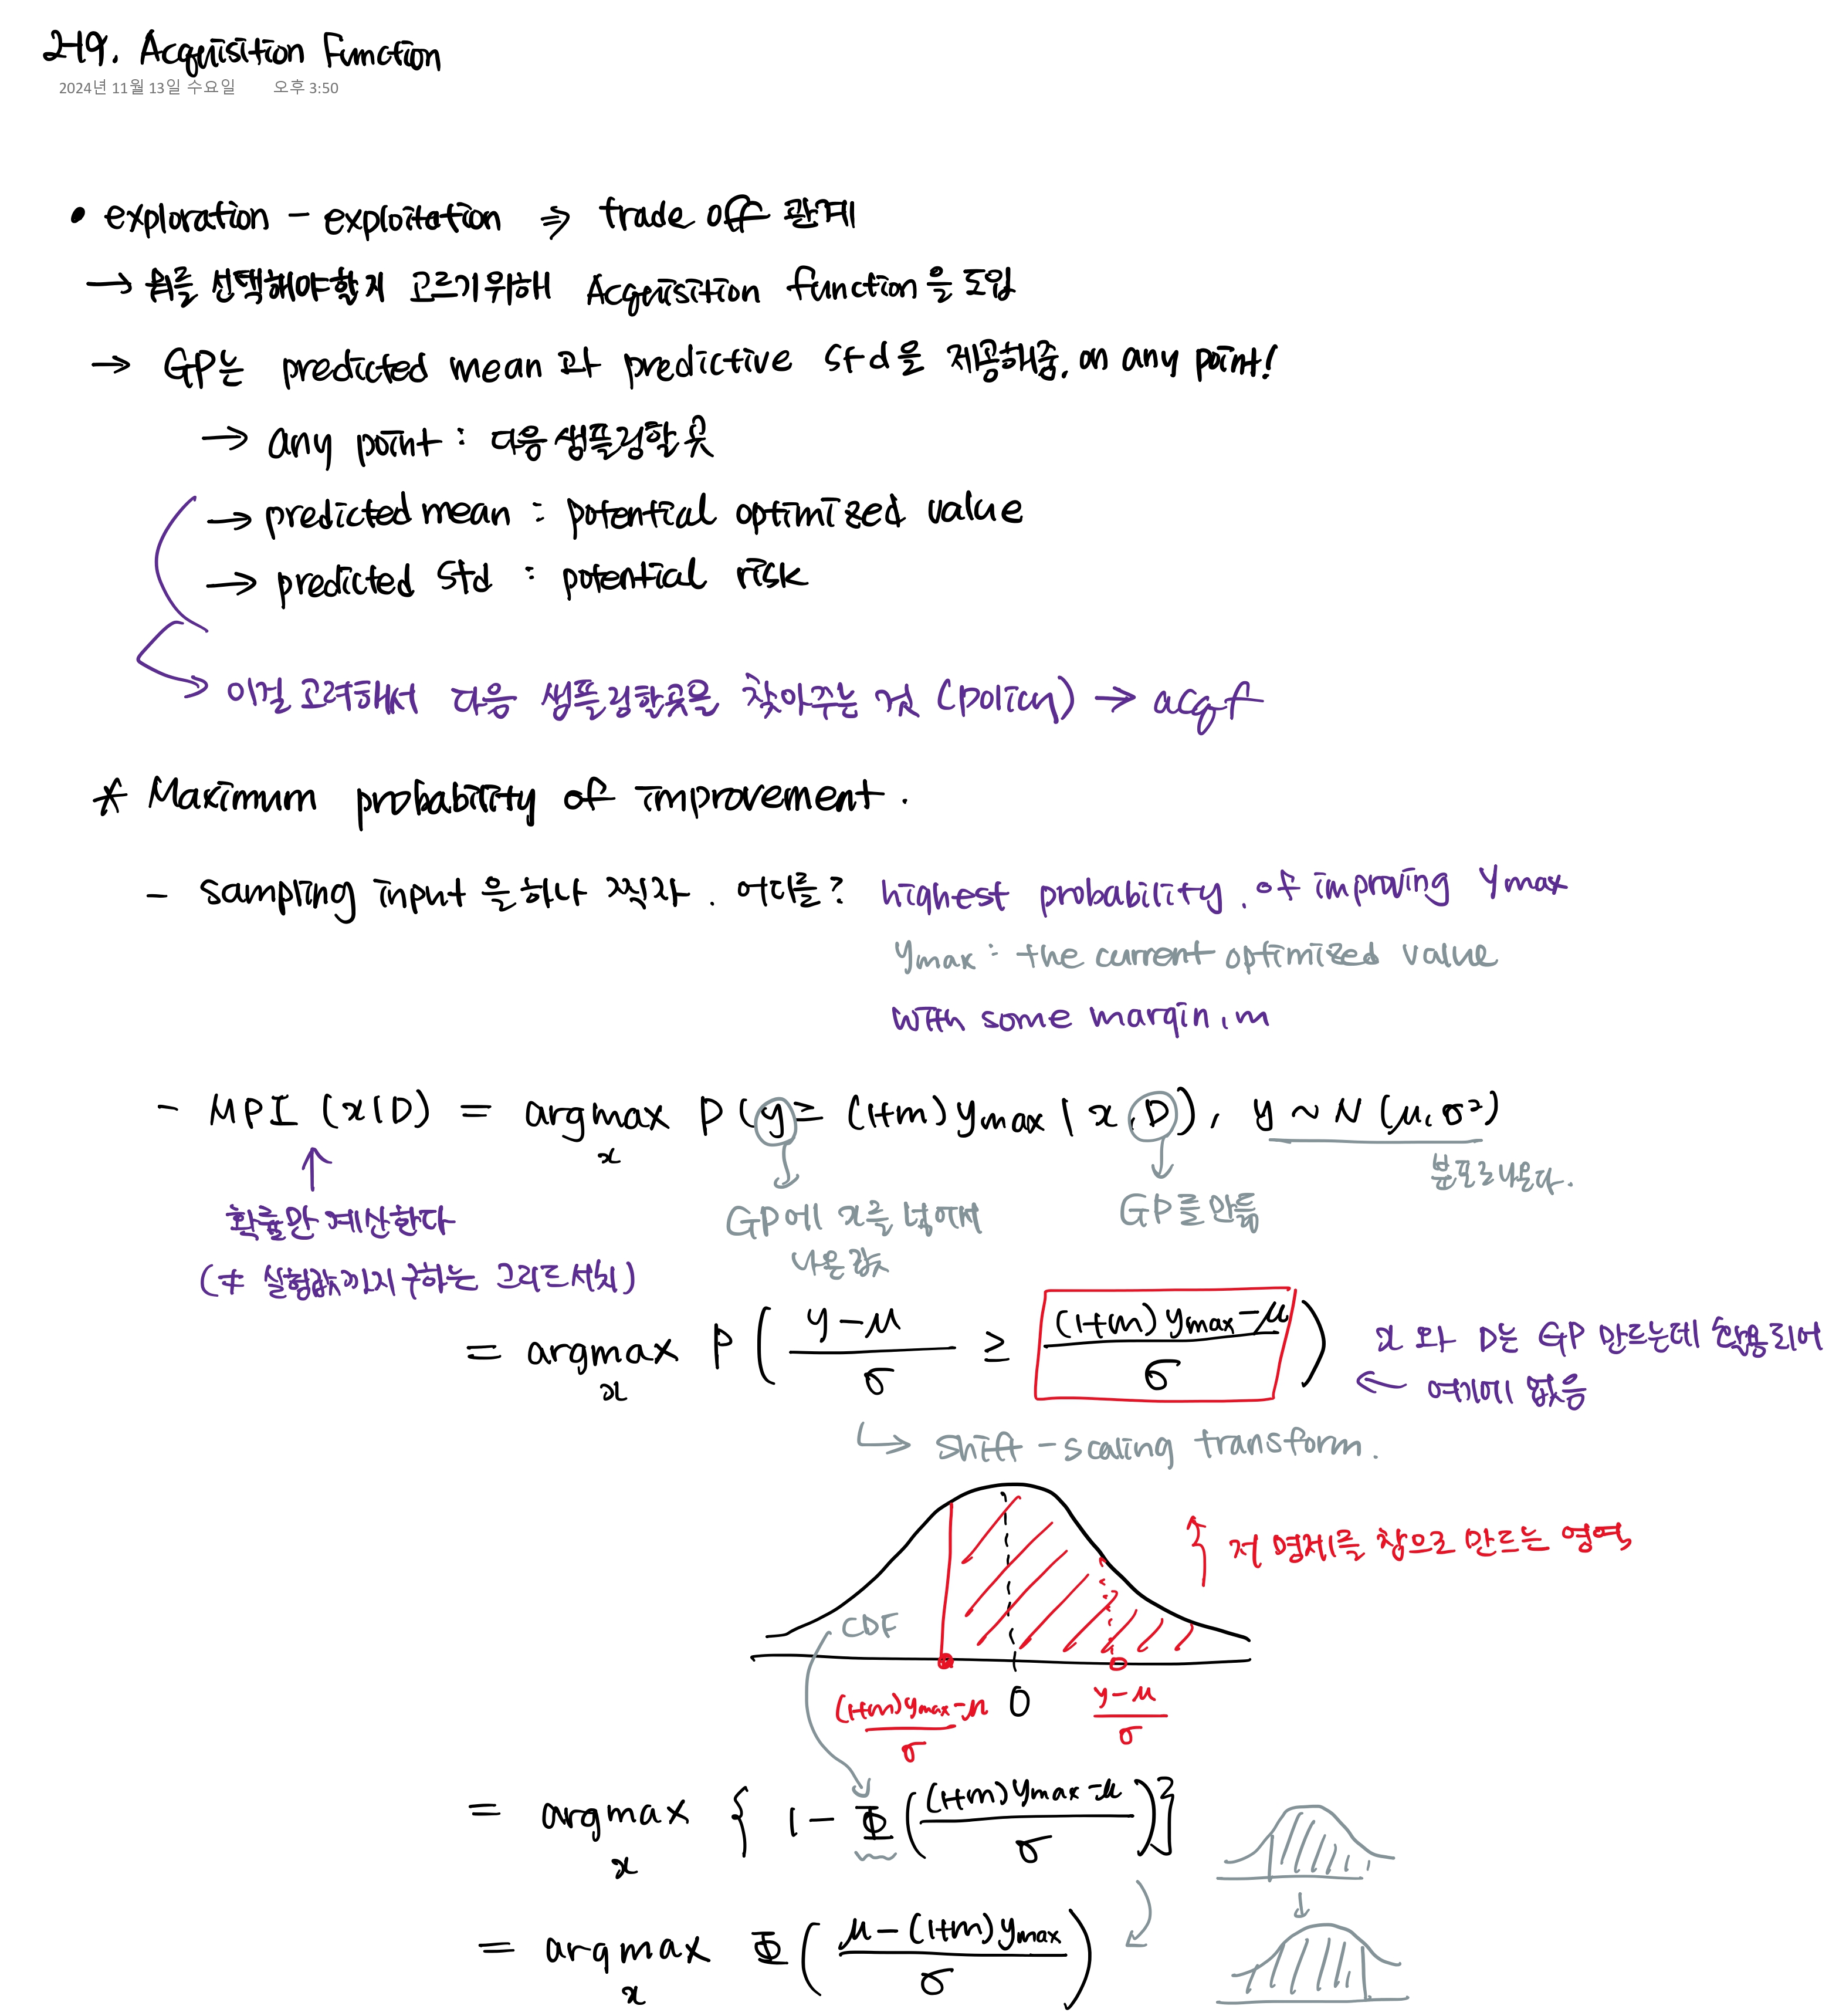 2-19. Acquisition Function
2024년 11월 13일 수요일 오후 3:50
• exploration - exploitation ⇒ trade off 관계
→ 뭐를 선택해야할지 고르기위해 Acquisition function을 도입
→ GP는 predicted mean 과 predictive std을 제공해줌. on any point!
→ any point : 다음 샘플링할 곳
→ predicted mean : potential optimized value
→ predicted std : potential risk
이걸 고려해서 다음 샘플링할곳을 찾아주는 것 (policy) → acqf
* Maximum probability of improvement.
- sampling input 을 하나 찍자. 어디를? highest probability. of improving ymax
ymax : the current optimized value
with some margin, m
- MPI (x|D) = argmax_x P(y ≥ (1+m) ymax | x, D), y ~ N(μ, σ²)
분포로나온다.
확률만 계산한다
GP에 x를 넣어서
나온 값
GP를 만듦
(≠ 실험값까지 구하는 그리드서치)
= argmax_x P( (y-μ)/σ ≥ ((1+m) ymax - μ)/σ )
x 와 D는 GP 만드는데 활용되어
← 여기에 없음
↳ shift - scaling transform.
↑ 저 명제를 참으로 만드는 영역
CDF
((1+m) ymax - μ)/σ 0 (y-μ)/σ
= argmax_x { 1 - Φ( ((1+m) ymax - μ)/σ ) }
= argmax_x Φ( (μ - (1+m) ymax)/σ )